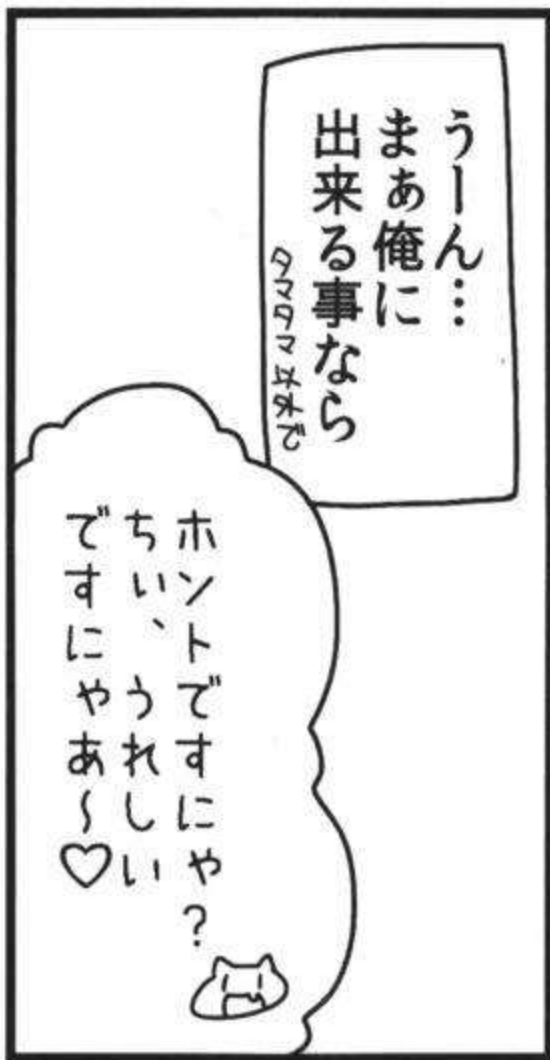 うーん…
まぁ俺に
出来る事なら
タマタマ以外で
ホントですにゃ?
ちぃ、うれしい
ですにゃあ～♡